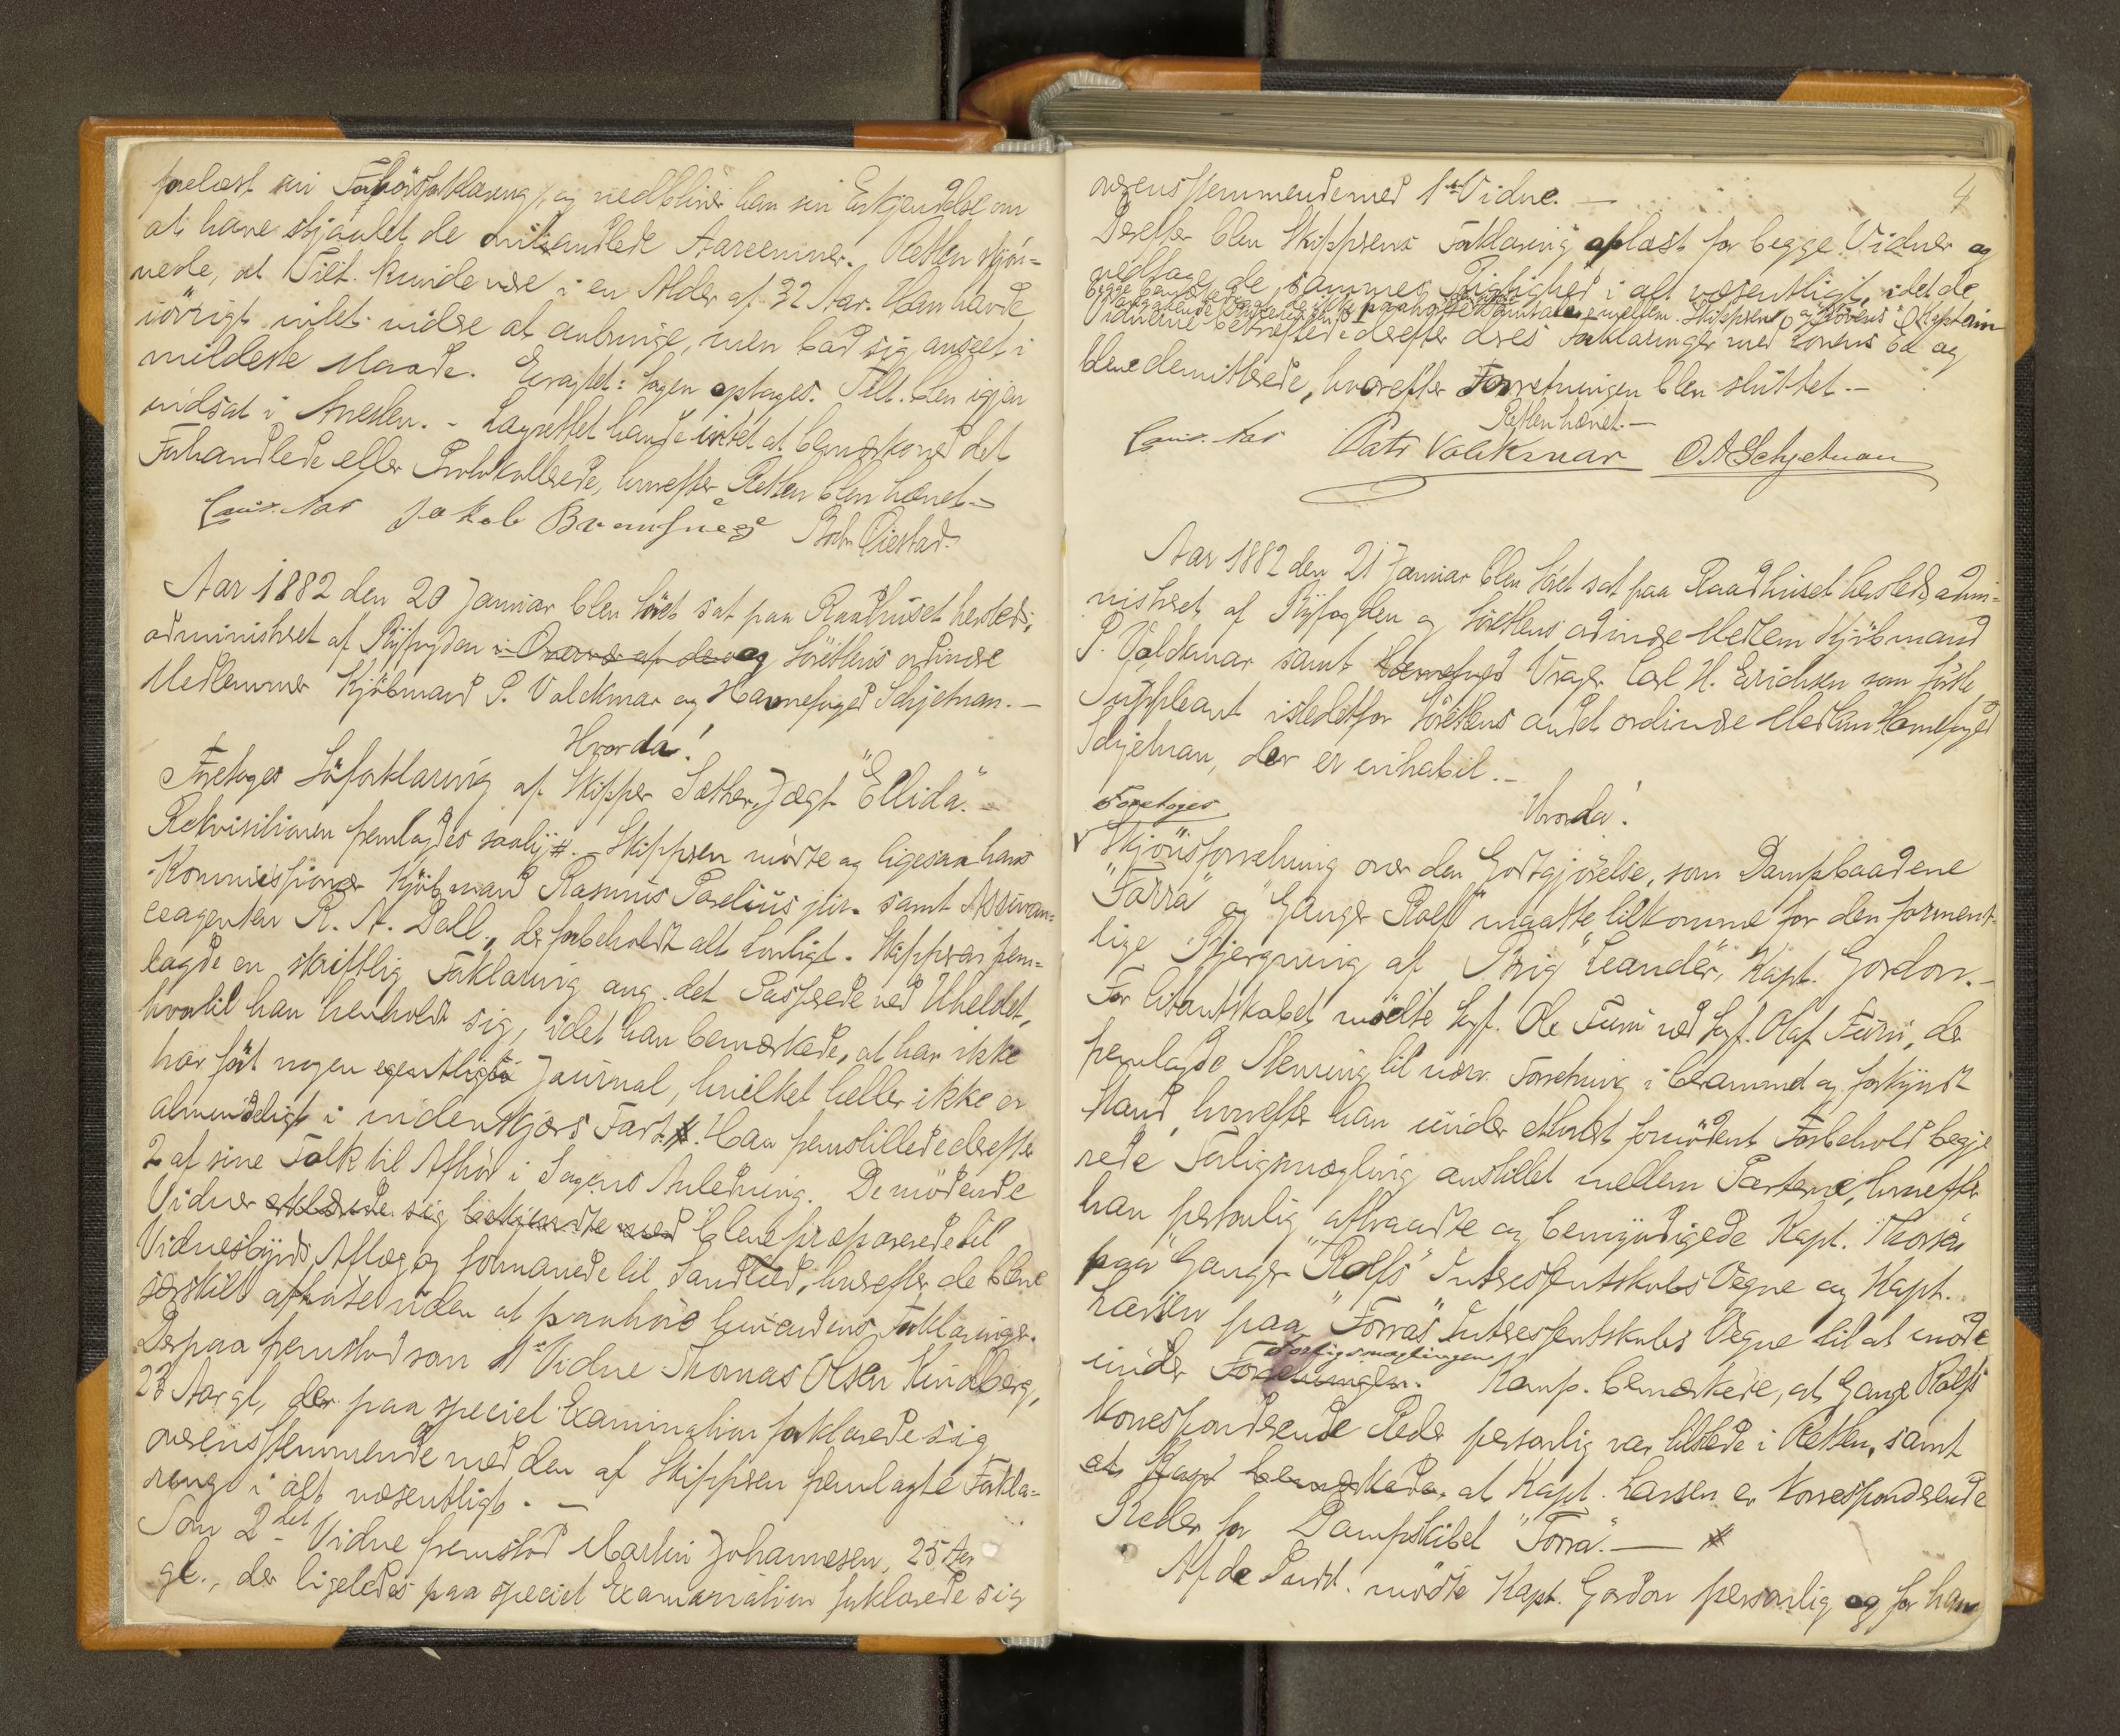 forelæst sin Forhörsforklaring, og vedblivr han sin Erkjendelse om
at have stjaalet de omhandlede Aareemner. Retten skjön-
nede, at Tilt. kunde være i en Alder af 32 Aar. Han havde
iövrigt intet vidre at anbringe, men bad sig anseet i
mildeste Maade. Eragtet: Sagen optages. Tilt. blev igjen
indsat i Arresten. - Lagrettet havde intet at bemærke ved det
Forhandlede eller Protokollerede, hvorefter Retten blev hævet. -
Jakob Rode Oiestad.
Aar 1882 den 20 Januar blev Söret sat paa Raadhuset hersteds,
administreret af Byfogden i Overvær af de og Sörettens ordinære
Medlemmer Kjöbmand P. Volckmar og Havnefoged Schjetnan. -
Hvorda!
Foretoges Söforklaring af Skipper Sæther, Jægt "Ellida". -
Rekvisitionen fremlagdes saalyd. #. - Skipperen mödte og ligesaa hans
Kommissionær Kjöbmand Rasmus Parelius jun. samt Assuran-
ceagenten R. A. Dall, der forbeholdt alt Lovligt. Skipperen frem-
lagde en skriftlig Forklaring ang. det Passerede ved Uheldet,
hvortil han henholdt sig, idet han bemærkede, at han ikke
har fört nogen egentlig Journal, hvilket heller ikke er
almindeligt i indenskjærs Fart. #. Han fremstillede derefter
2 af sine Folk til Afhör i Sagens Anledning. De mödende
Vidner erklærede sig bekjendte med bleve præparerede til
Vidnesbyrds Aflæg og formanede til Sandhed, hvorefter de bleve
særskilt afhörte uden at paahöre hinandens Forklaringer.
Derpaa fremstod som 1ste Vidne Thomas Olsen Kindberg,
23 Aar gl., der paa speciel Examination forklarede sig
overensstemmende med den af Skipperen fremlagte Forkla-
ring i alt væsentligt. -
Som 2det Vidne fremstod Martin Johannesen, 25 Aar
gl., der ligeledes paa speciel Examination forklarede sig
4
overensstemmende med 1ste Vidne. -
Derefter blev Skipperens Forklaring oplæst for begge Vidner og
vedtage de sammes Rigtighed i alt væsentligt, idet de
begge at de ikke paahörte Samtalen mellem Skipperen og Kaptain
Vidnerne bekræftede derefter deres Forklaringer med Lovens Ed og
bleve demitterede, hvorefter Forretningen blev sluttet. -
Retten hævet. -
Patr Volckmar O A Schjetnan
Aar 1882 den 21 Januar blev Söret sat paa Raadhuset hersteds, admi-
nistreret af Byfogden og Sörettens ordinære Medlem Kjöbmand
P. Volckmar samt Havnefoged Vrager Carl H. Erichsen som förste
Suppleant istedetfor Sörettens andet ordinære Medlem Havnefoged
Schjetnan, der er inhabil. -
Hvorda!
Foretoges
Skjönsforretning over den Godtgjörelse, som Dampbaadene
"Forra" og "Ganger Rolf" maatte tilkomme for den forment-
lige Bjergning af Brig "Leander", Kapt. Gordon. -
For Citantskabet mödte Sagf. Ole Furu ved Sagf. Olaf Furu, der
fremlagde Stevning til nærv. Forretning i berammet og forkyndt
Stand, hvorefter han under ethvert fornödent Forbehold begje-
rede Forligsmægling anstillet mellem Parterne, hvorefter
han personlig aftraadte og bemyndigede Kapt. Thorsén
paa "Ganger Rolfs" Interessentskabs Vegne og Kapt.
Larsen paa "Forras" Interessentskabs Vegne til at möde
Forligsmæglingen
under Forretningen. Komp. bemærkede, at Ganger Rolfs
korresponderende Reder personlig var tilstede i Retten, samt
at Kapt bemærkede, at Kapt. Larsen er korresponderende
Reder for Dampskibet "Forra". - #
Af de Indst. mödte Kapt. Gordon personlig og for ham